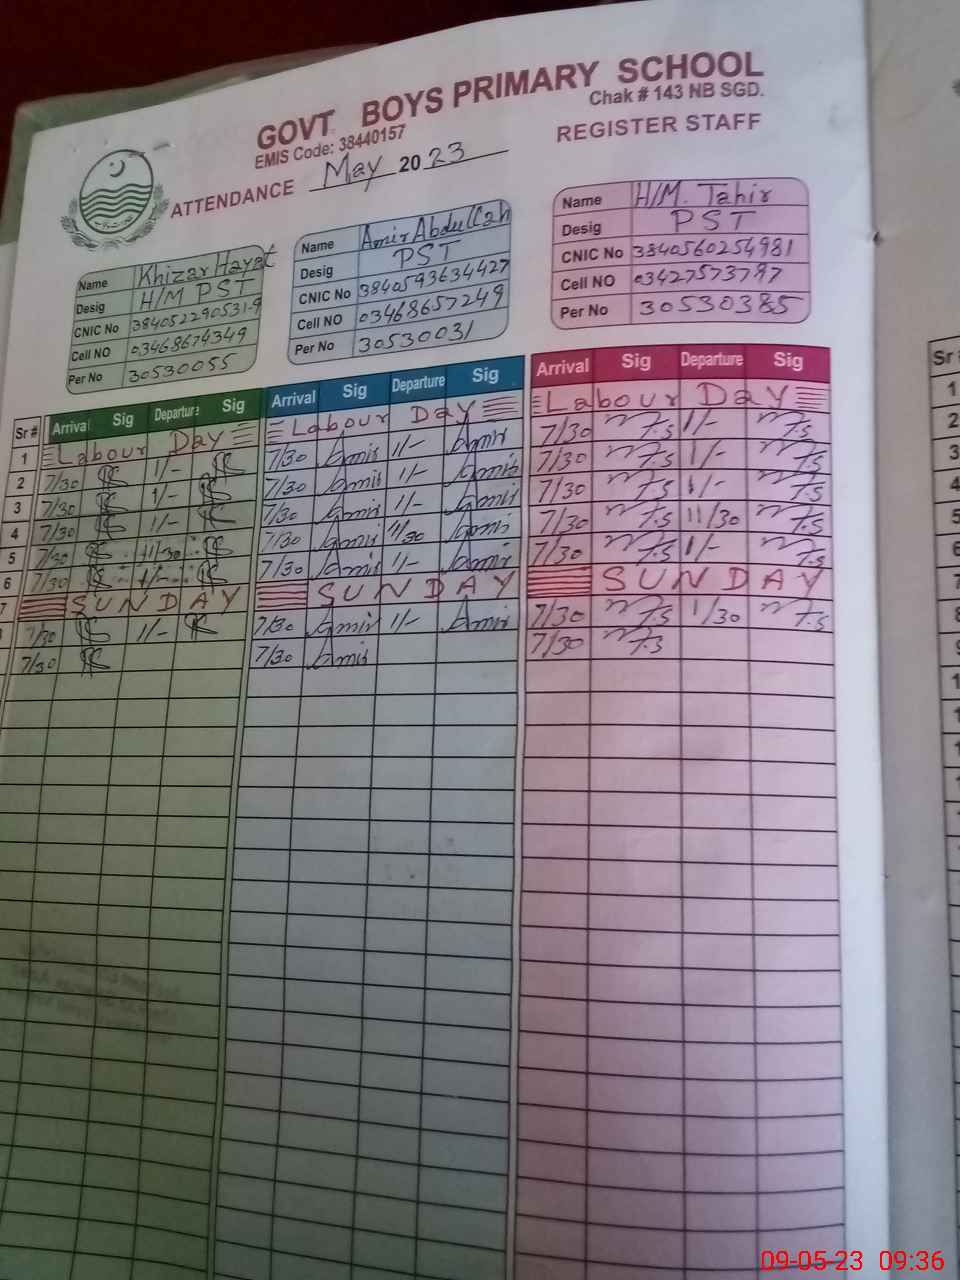 GOVT BOYS PRIMARY SCHOOL
EMIS Code: 38440157
Chak # 143 NB SGD.
ATTENDANCE May 2023
REGISTER STAFF
Name Khizar Hayat
Desig H/M PST
CNIC No 384052290531-9
Cell NO 03468674349
Per No 30530055
Name Amir Abdullah
Desig PST
CNIC No 3840593634427
Cell NO 03468657249
Per No 30530031
Name H/M. Tahir
Desig PST
CNIC No 3840560254981
Cell NO 03427573797
Per No 30530385
Sr # Arrival Sig Departure Sig Arrival Sig Departure Sig Arrival Sig Departure Sig
1 Labour Day Labour Day Labour Day
2 7/30 1/- 7/30 Amir 1/- Amir 7/30 1/-
3 7/30 1/- 7/30 Amir 1/- Amir 7/30 1/-
4 7/30 1/- 7/30 Amir 1/- Amir 7/30 1/-
5 7/30 11/30 7/30 Amir 11/30 Amir 7/30 11/30
6 7/30 1/- 7/30 Amir 1/- Amir 7/30 1/-
7 SUNDAY SUNDAY SUNDAY
7/30 1/- 7/30 Amir 1/- Amir 7/30 1/30
7/30 7/30 Amir 7/30
Sr
1
2
3
4
5
6
7
8
9
09-05-23 09:36